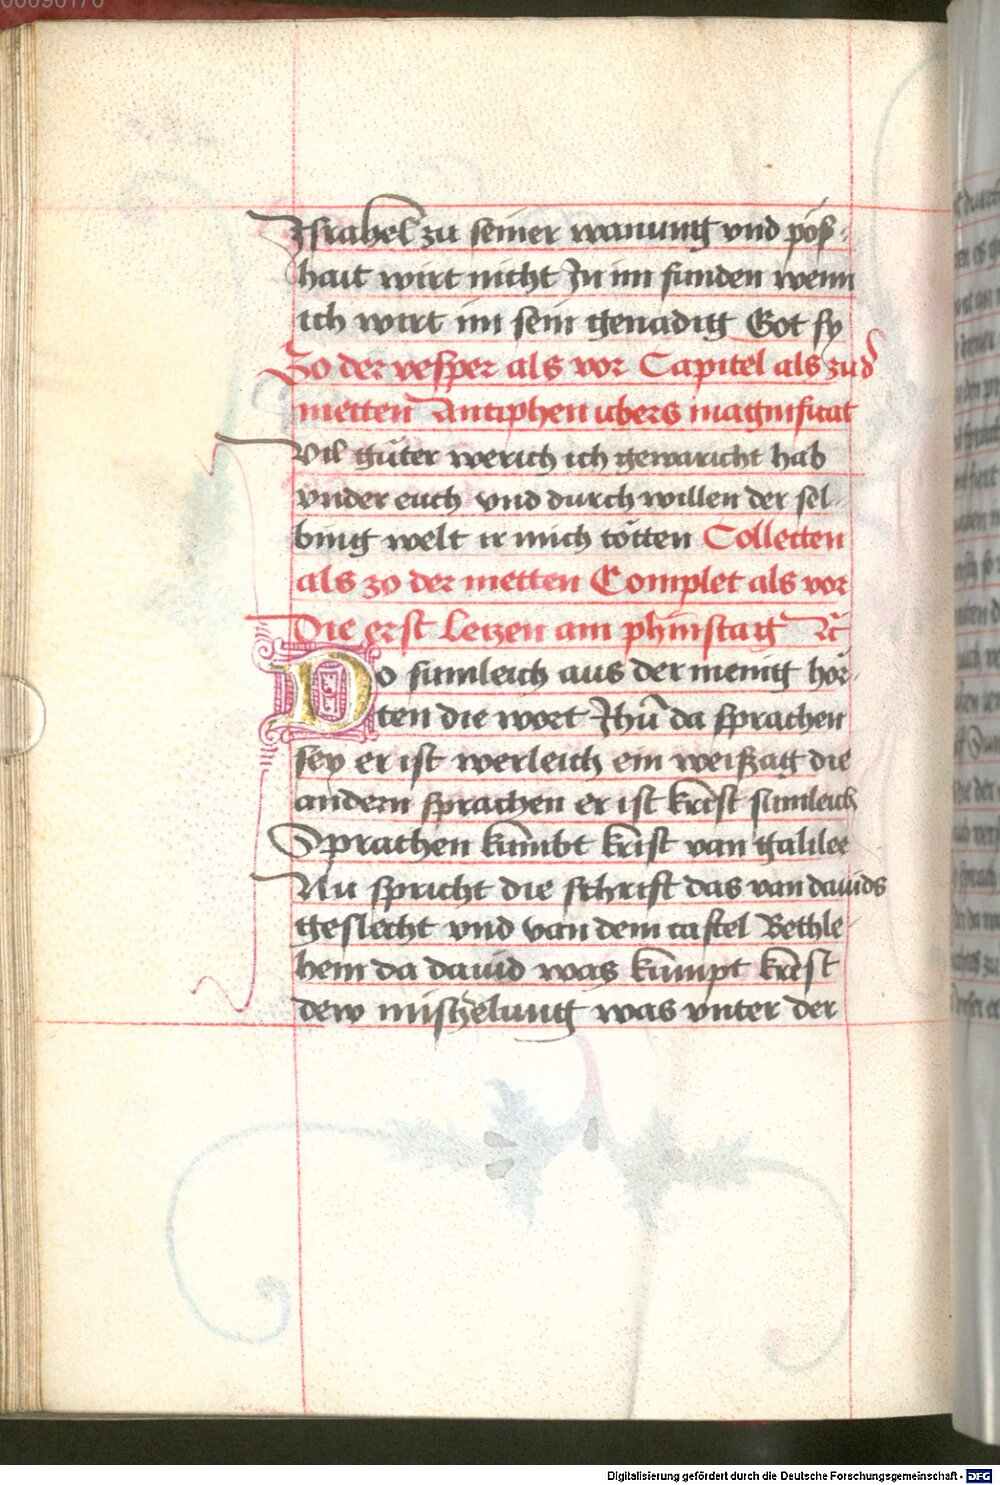 00090170
Jsrahel zu seiner wanung vnd pos-
hait wirt nicht Jn im funden wenn
ich wirt im sein genadig Got sy
Zo der vesper als vor Capitel als zu d
metten Antiphen ubers magnificat
Vil güter werich ich gewaricht hab
vnder euch vnd durch willen der sel-
bing welt ir mich tötten Collecten
als zo der metten Complet als vor
Die erst Letzen am phinstag
Do sumleich aus der menig hör-
ten die wort Jhū da sprachen
sey er ist werleich ein weissag die
andern sprachen er ist krist sumleich
Sprachen kumbt krist van galilee
Nu spricht die schrift das van dauids
geslecht vnd van dem castel Bethle-
hem da dauid was kumpt krist
dew mishelung was vnter der
Digitalisierung gefördert durch die Deutsche Forschungsgemeinschaft - DFG